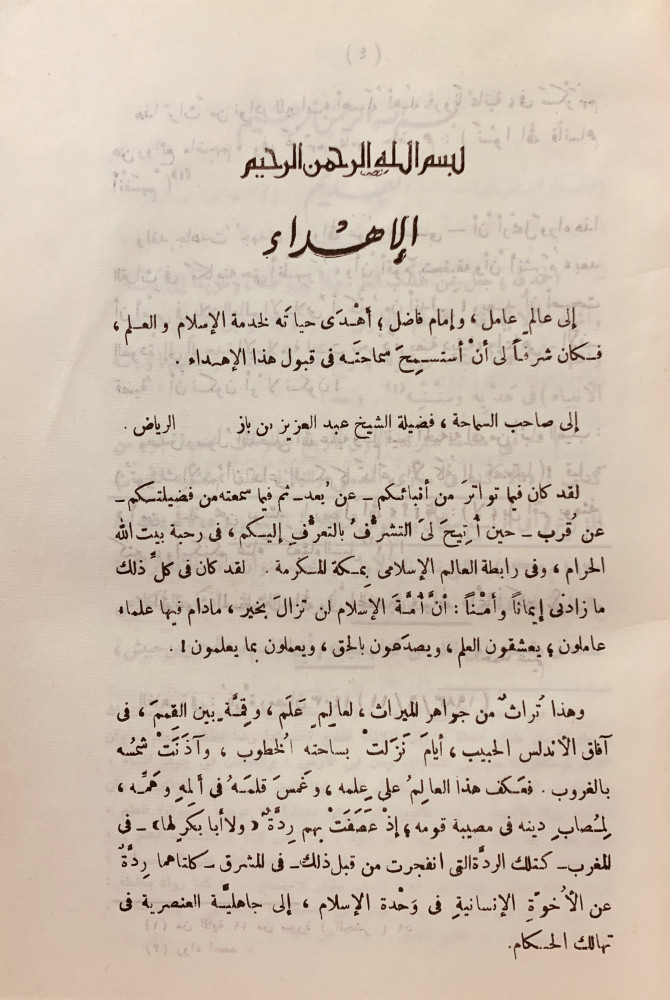 بسم الله الرحمن الرحيم
الإهداء
إلى عالمٍ عامل ، وإمام فاضل ؛ أهْدَى حياتَه لخدمة الإسلام والعلم ،
فكان شرفاً لى أنْ أستسمِحَ سماحتَه فى قبول هذا الإهداء .
إلى صاحب السماحة ، فضيلة الشيخ عبد العزيز بن باز الرياض .
لقد كان فيما تواترَ من أنبائكم – عن بُعد – ثم فيما سمعته من فضيلتكم –
عن قُرب – حين أُتِيحَ لىَ التشرُّفُ بالتعرُّفِ إليكم ، فى رحبة بيت الله
الحرام ، وفى رابطة العالم الإسلامى بِمكة المكرمة . لقد كان فى كلِّ ذلك
ما زادنى إيماناً وأمْناً : أنَّ أمَّةَ الإسلام لن تزالَ بخير ، مادام فيها علماء
عاملون ؛ يعشقون العلم ، ويصدَعون بالحق ، ويعملون بما يعلمون ! .
وهذا تُراثٌ من جواهر الميراث ، لعالِمٍ عَلَم ، وقِمَّةٍ بين القِمَم ، فى
آفاق الأندلس الحبيب ، أيامَ نَزَلتْ بساحته الخُطوب ، وآذَنَتْ شمسُه
بالغروب . فعَكف هذا العالِمُ على عِلمه ، وغَمسَ قلمَهُ فى ألمِهِ وهَمِّه ،
لِمُصابِ دينه فى مصيبة قومه ؛ إذْ عَصَفَتْ بهم رِدَّةٌ « ولا أبا بكرٍ لها » – فى
المغرب – كتلك الردَّة التى انفجرت من قبل ذلك – فى المشرق – كلتاهما رِدَّةٌ
عن الأُخوّةِ الإنسانيةِ فى وَحْدة الإسلام ، إلى جاهليَّة العنصرية فى
تهالك الحكام .